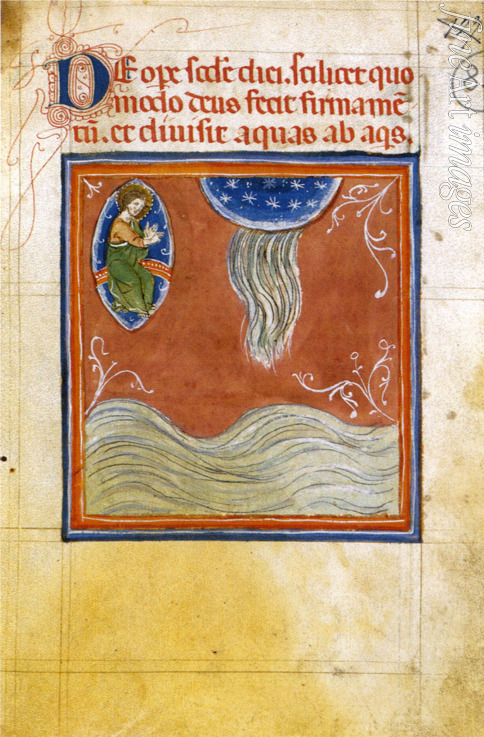 De oꝑe scđe diei. scilicet quo
modo deus fecit firmamē
tū. et diuisit aquas ab aq̄s.
fineartimages